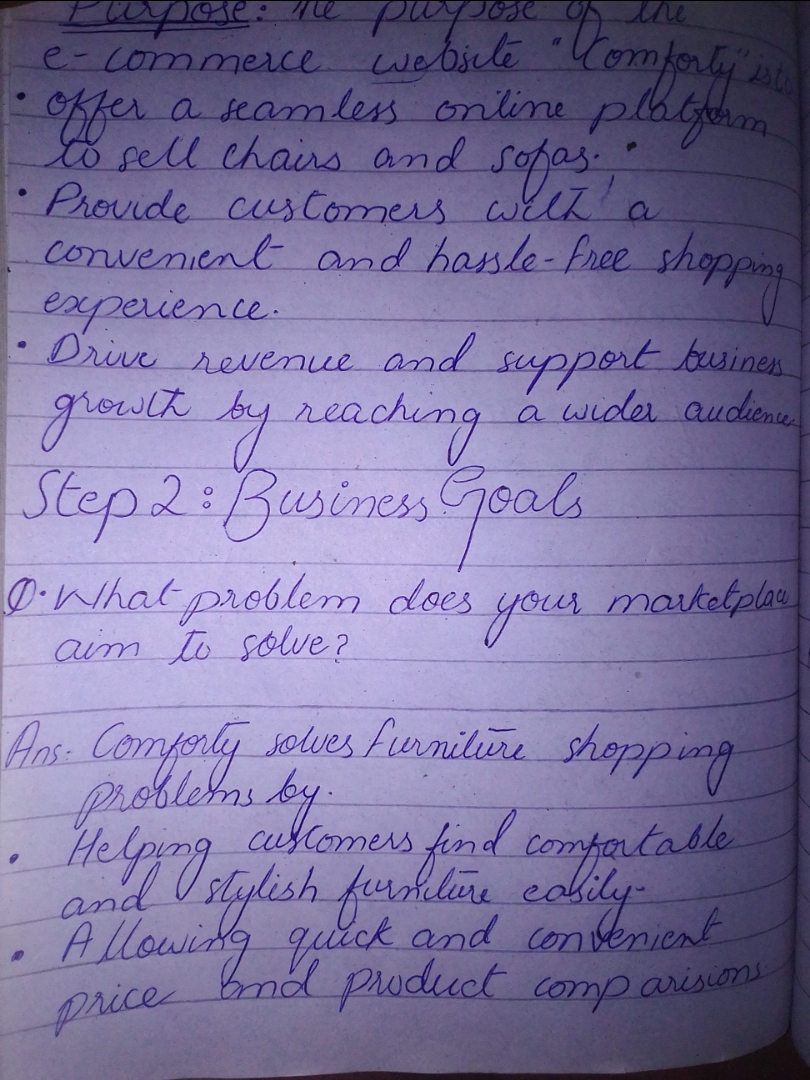 Purpose: The purpose of the
e-commerce website "Comforty" is to
• offer a seamless online platform
to sell chairs and sofas.
• Provide customers with a
convenient and hassle-free shopping
experience.
• Drive revenue and support business
growth by reaching a wider audience.
Step 2: Business Goals
Q. What problem does your marketplace
aim to solve?
Ans. Comforty solves furniture shopping
problems by.
• Helping customers find comfortable
and stylish furniture easily.
• Allowing quick and convenient
price and product comparisions